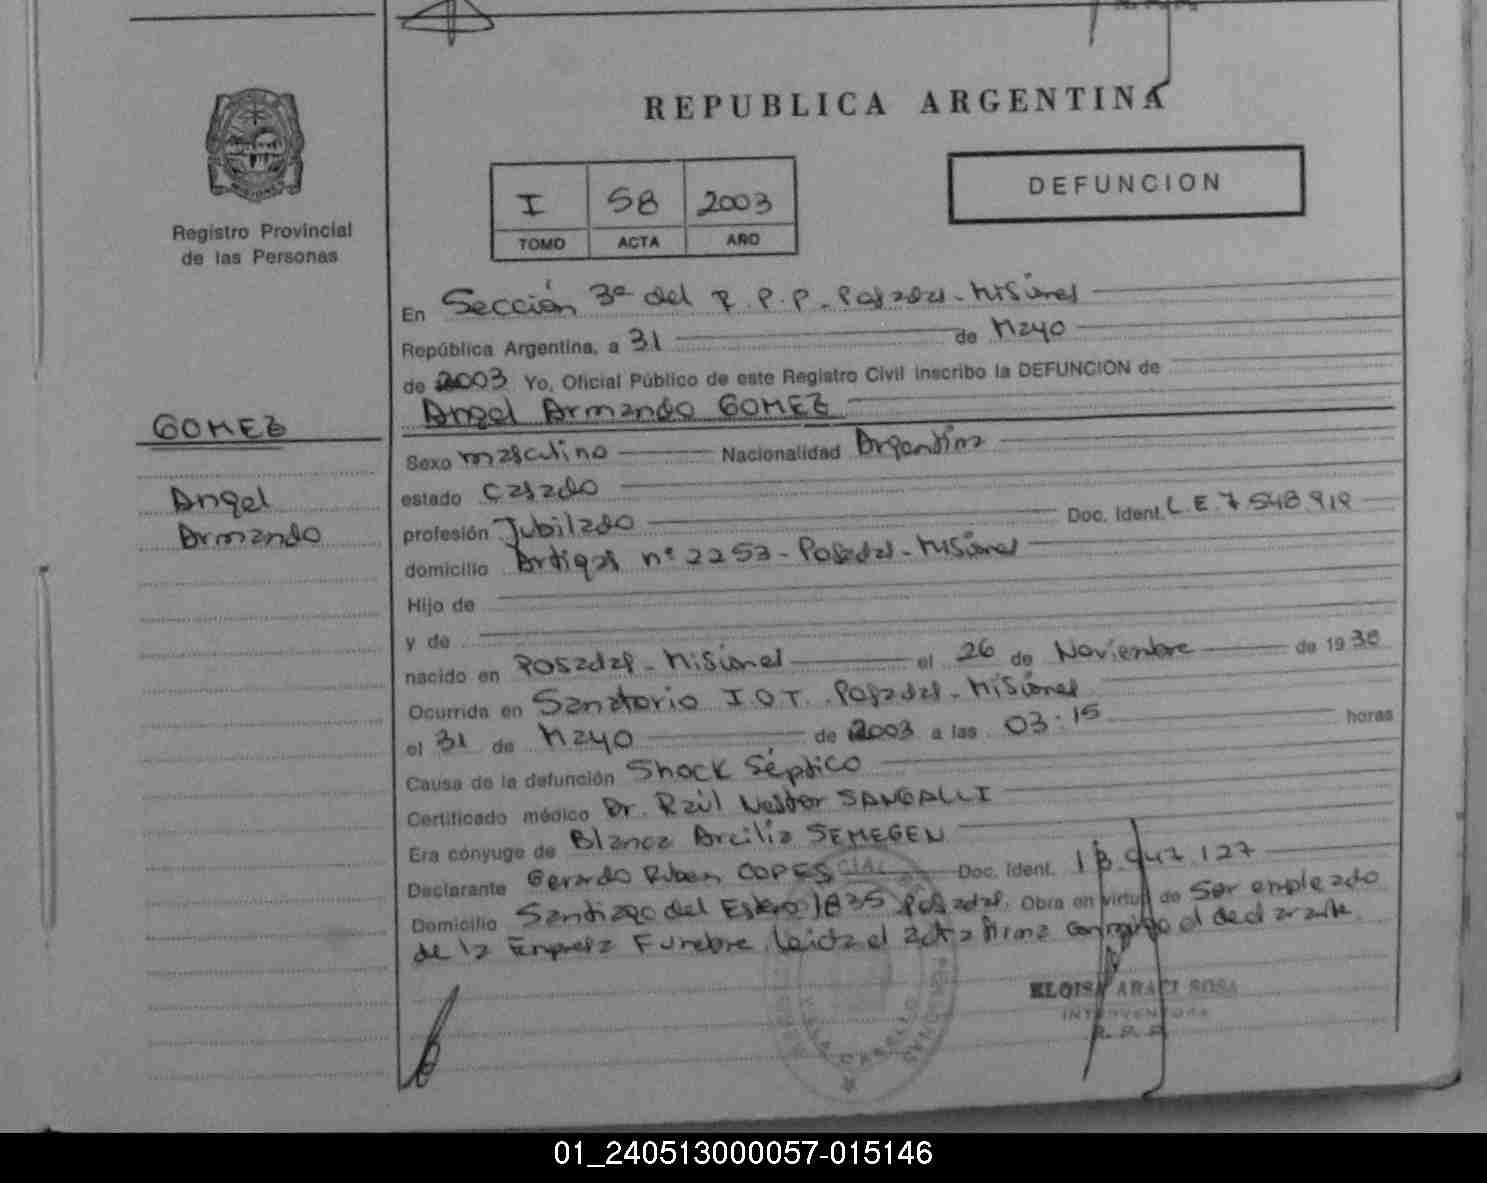 REPUBLICA ARGENTINA
DEFUNCION
I 58 2003
TOMO ACTA AÑO
Registro Provincial
de las Personas
En Sección 3ª del R.P.P. - Posadas - Misiones
República Argentina, a 31 de Mayo
de 2003 Yo, Oficial Público de este Registro Civil inscribo la DEFUNCION de
Angel Armando GOMEZ
GOMEZ
Sexo masculino Nacionalidad Argentina
Angel
estado casado
Armando
profesión Jubilado Doc. Ident. L.E. 7.548.919
domicilio Artigas nº 2253 - Posadas - Misiones
Hijo de
y de
nacido en Posadas - Misiones el 26 de Noviembre de 19
Ocurrida en Sanatorio I.O.T. Posadas - Misiones
el 31 de Mayo de 2003 a las 03:15 horas
Causa de la defunción Shock Séptico
Certificado médico Dr. Raúl Nestor SANGALLI
Era cónyuge de Blanca Arcilia SEMEGEN
Declarante Gerardo Ruben COPES Doc. Ident. 18.947.127
Domicilio Santiago del Estero 1835 Posadas. Obra en virtud de ser empleado
de la Empresa Funebre. Leida el acta firma conmigo el declarante
ELOISA ARACI SOSA
INTERVENTORA
R. P. P.
01_240513000057-015146